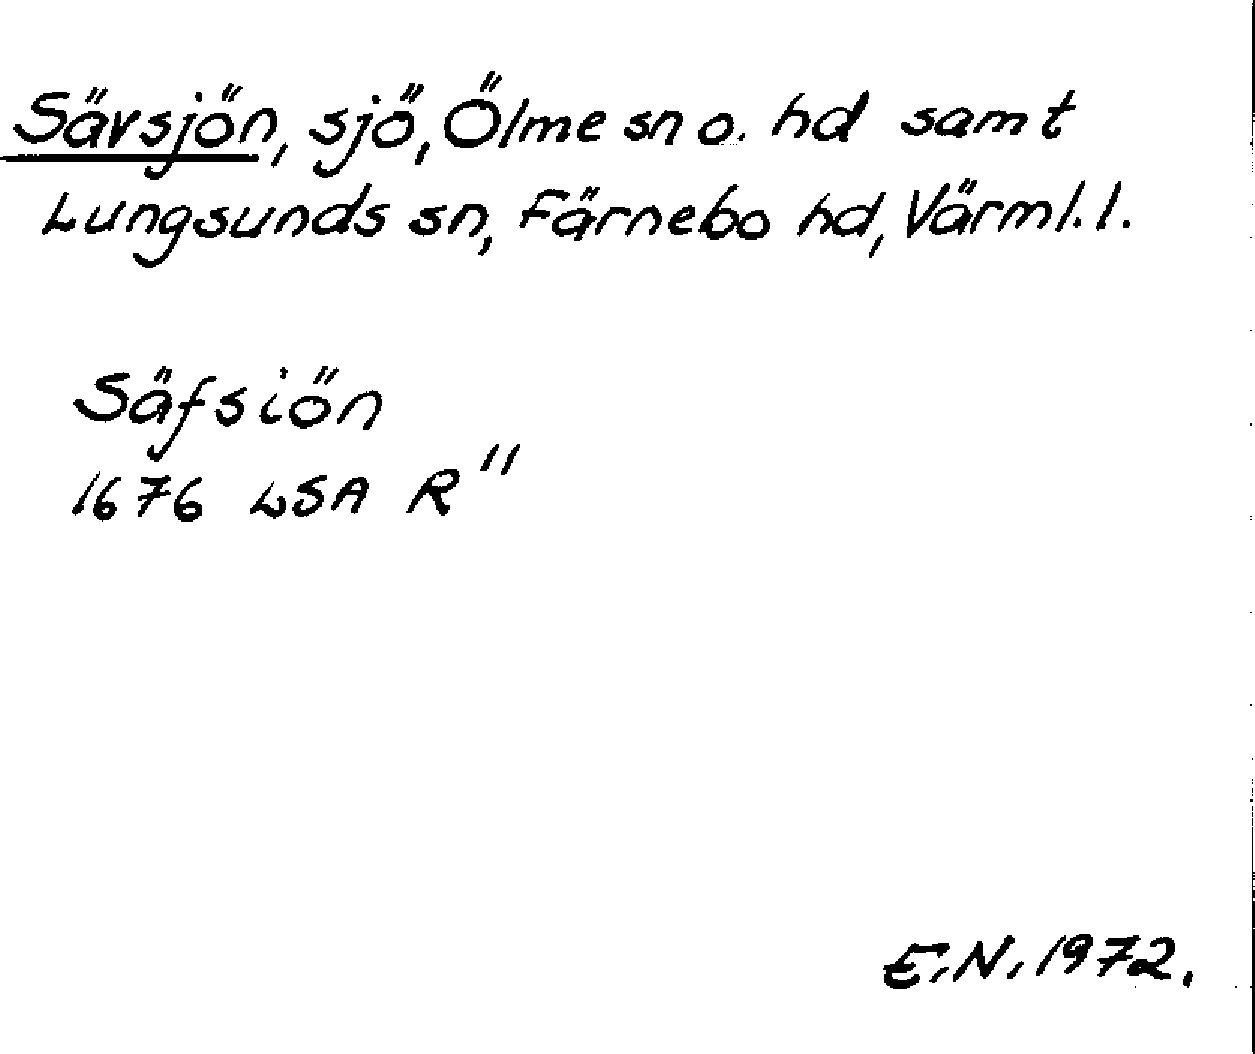 Sävsjön, sjö, Ölme sn o. hd samt
Lungsunds sn, Färnebo hd, Värml. l.
Säfsiön
1676 LSA R"
E.N. 1972.